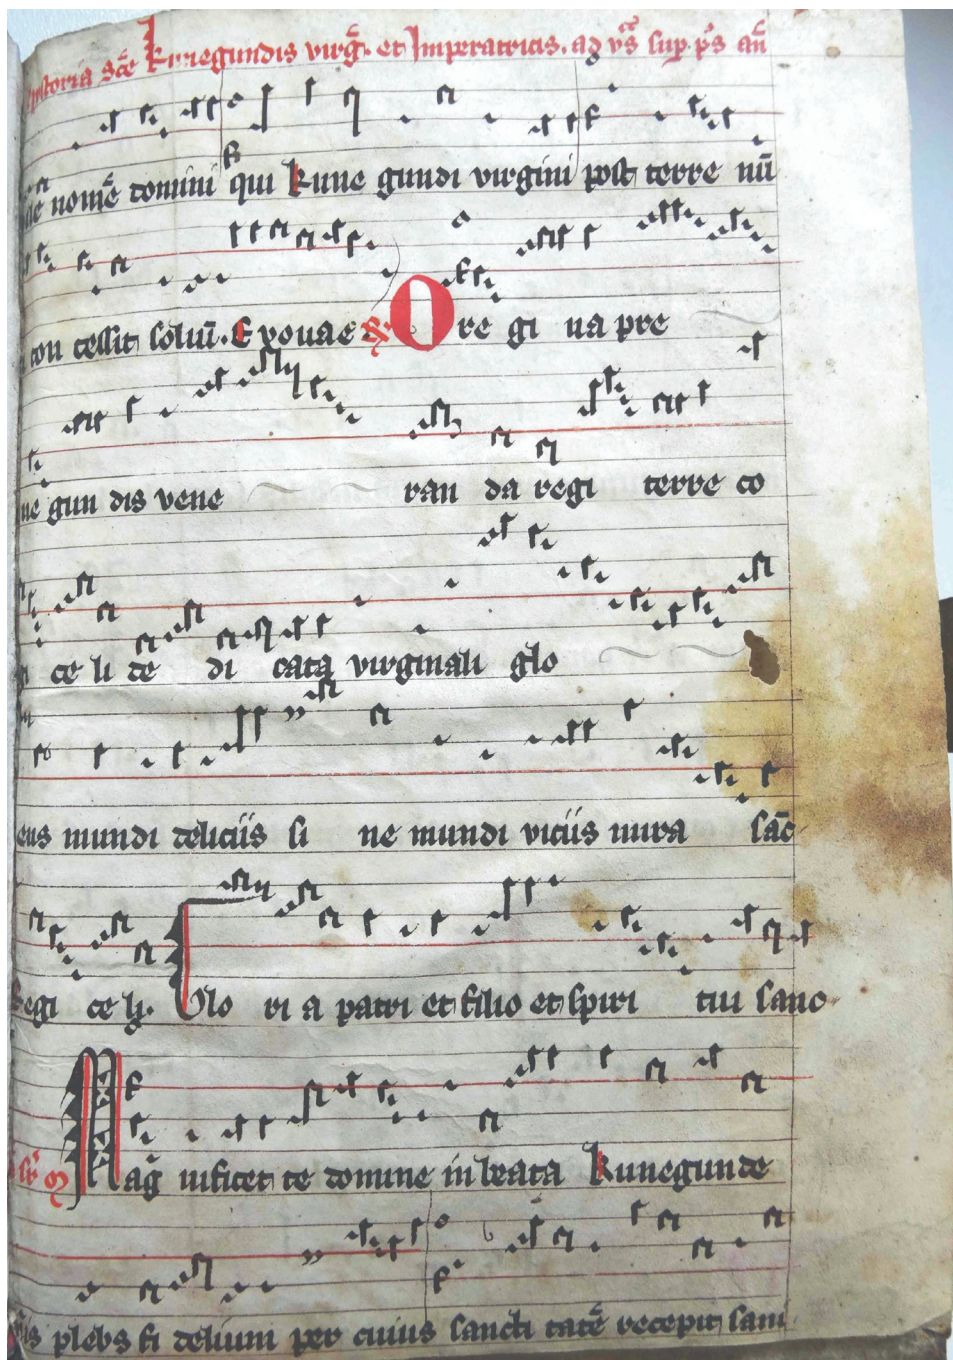 hystoria scē kunegundis virḡ. et Imperatricis. ad vs̄ sup. ps̄ an̄
nomē domini qui kune gundi virgini post terre nū
con cessit soliū. E vouae R. O re gi na pre
ne gun dis vene ran da regi terre co
ce li te di cata virginali glo
eus mundi deliciis si ne mundi viciis mira sāc
Regi ce li. Glo ri a patri et filio et spiri tui sanc
Mag̅ nificet te domine in beata kunegunde
plebs fi delium per cuius sancti tatē recepit sani